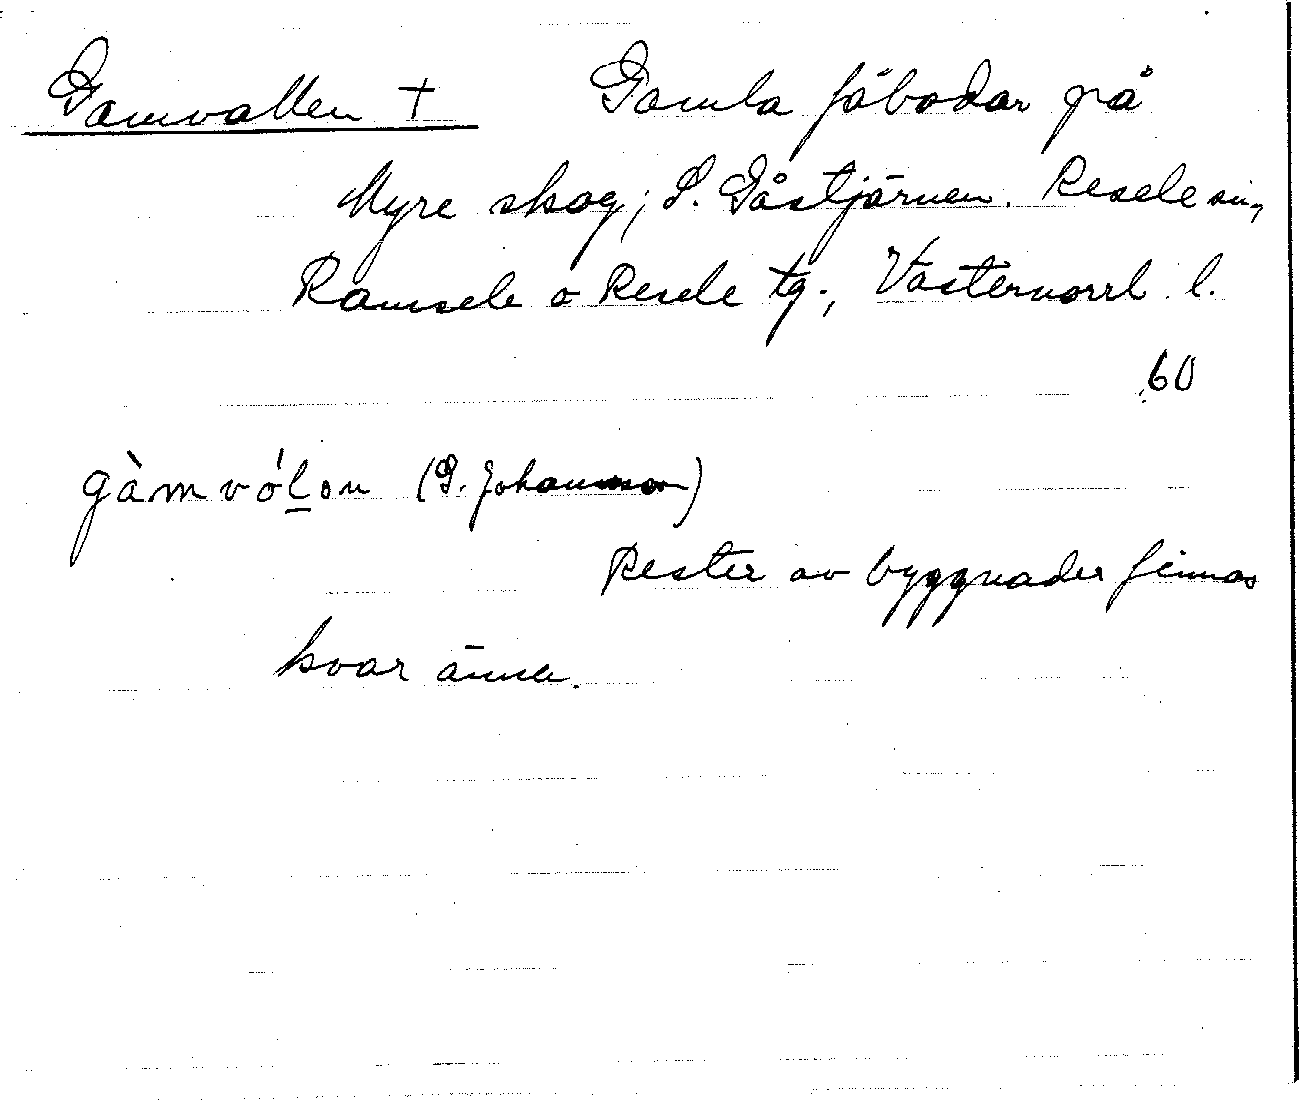 Gamvallen + Gamla fäbodar på
Myre skog, S. Gåstjärnen. Resele sn,
Ramsele o Resele tg., Västernorrl. l.
60
gàmvólon (G. Johansson)
Rester av byggnader finnas
kvar ännu.